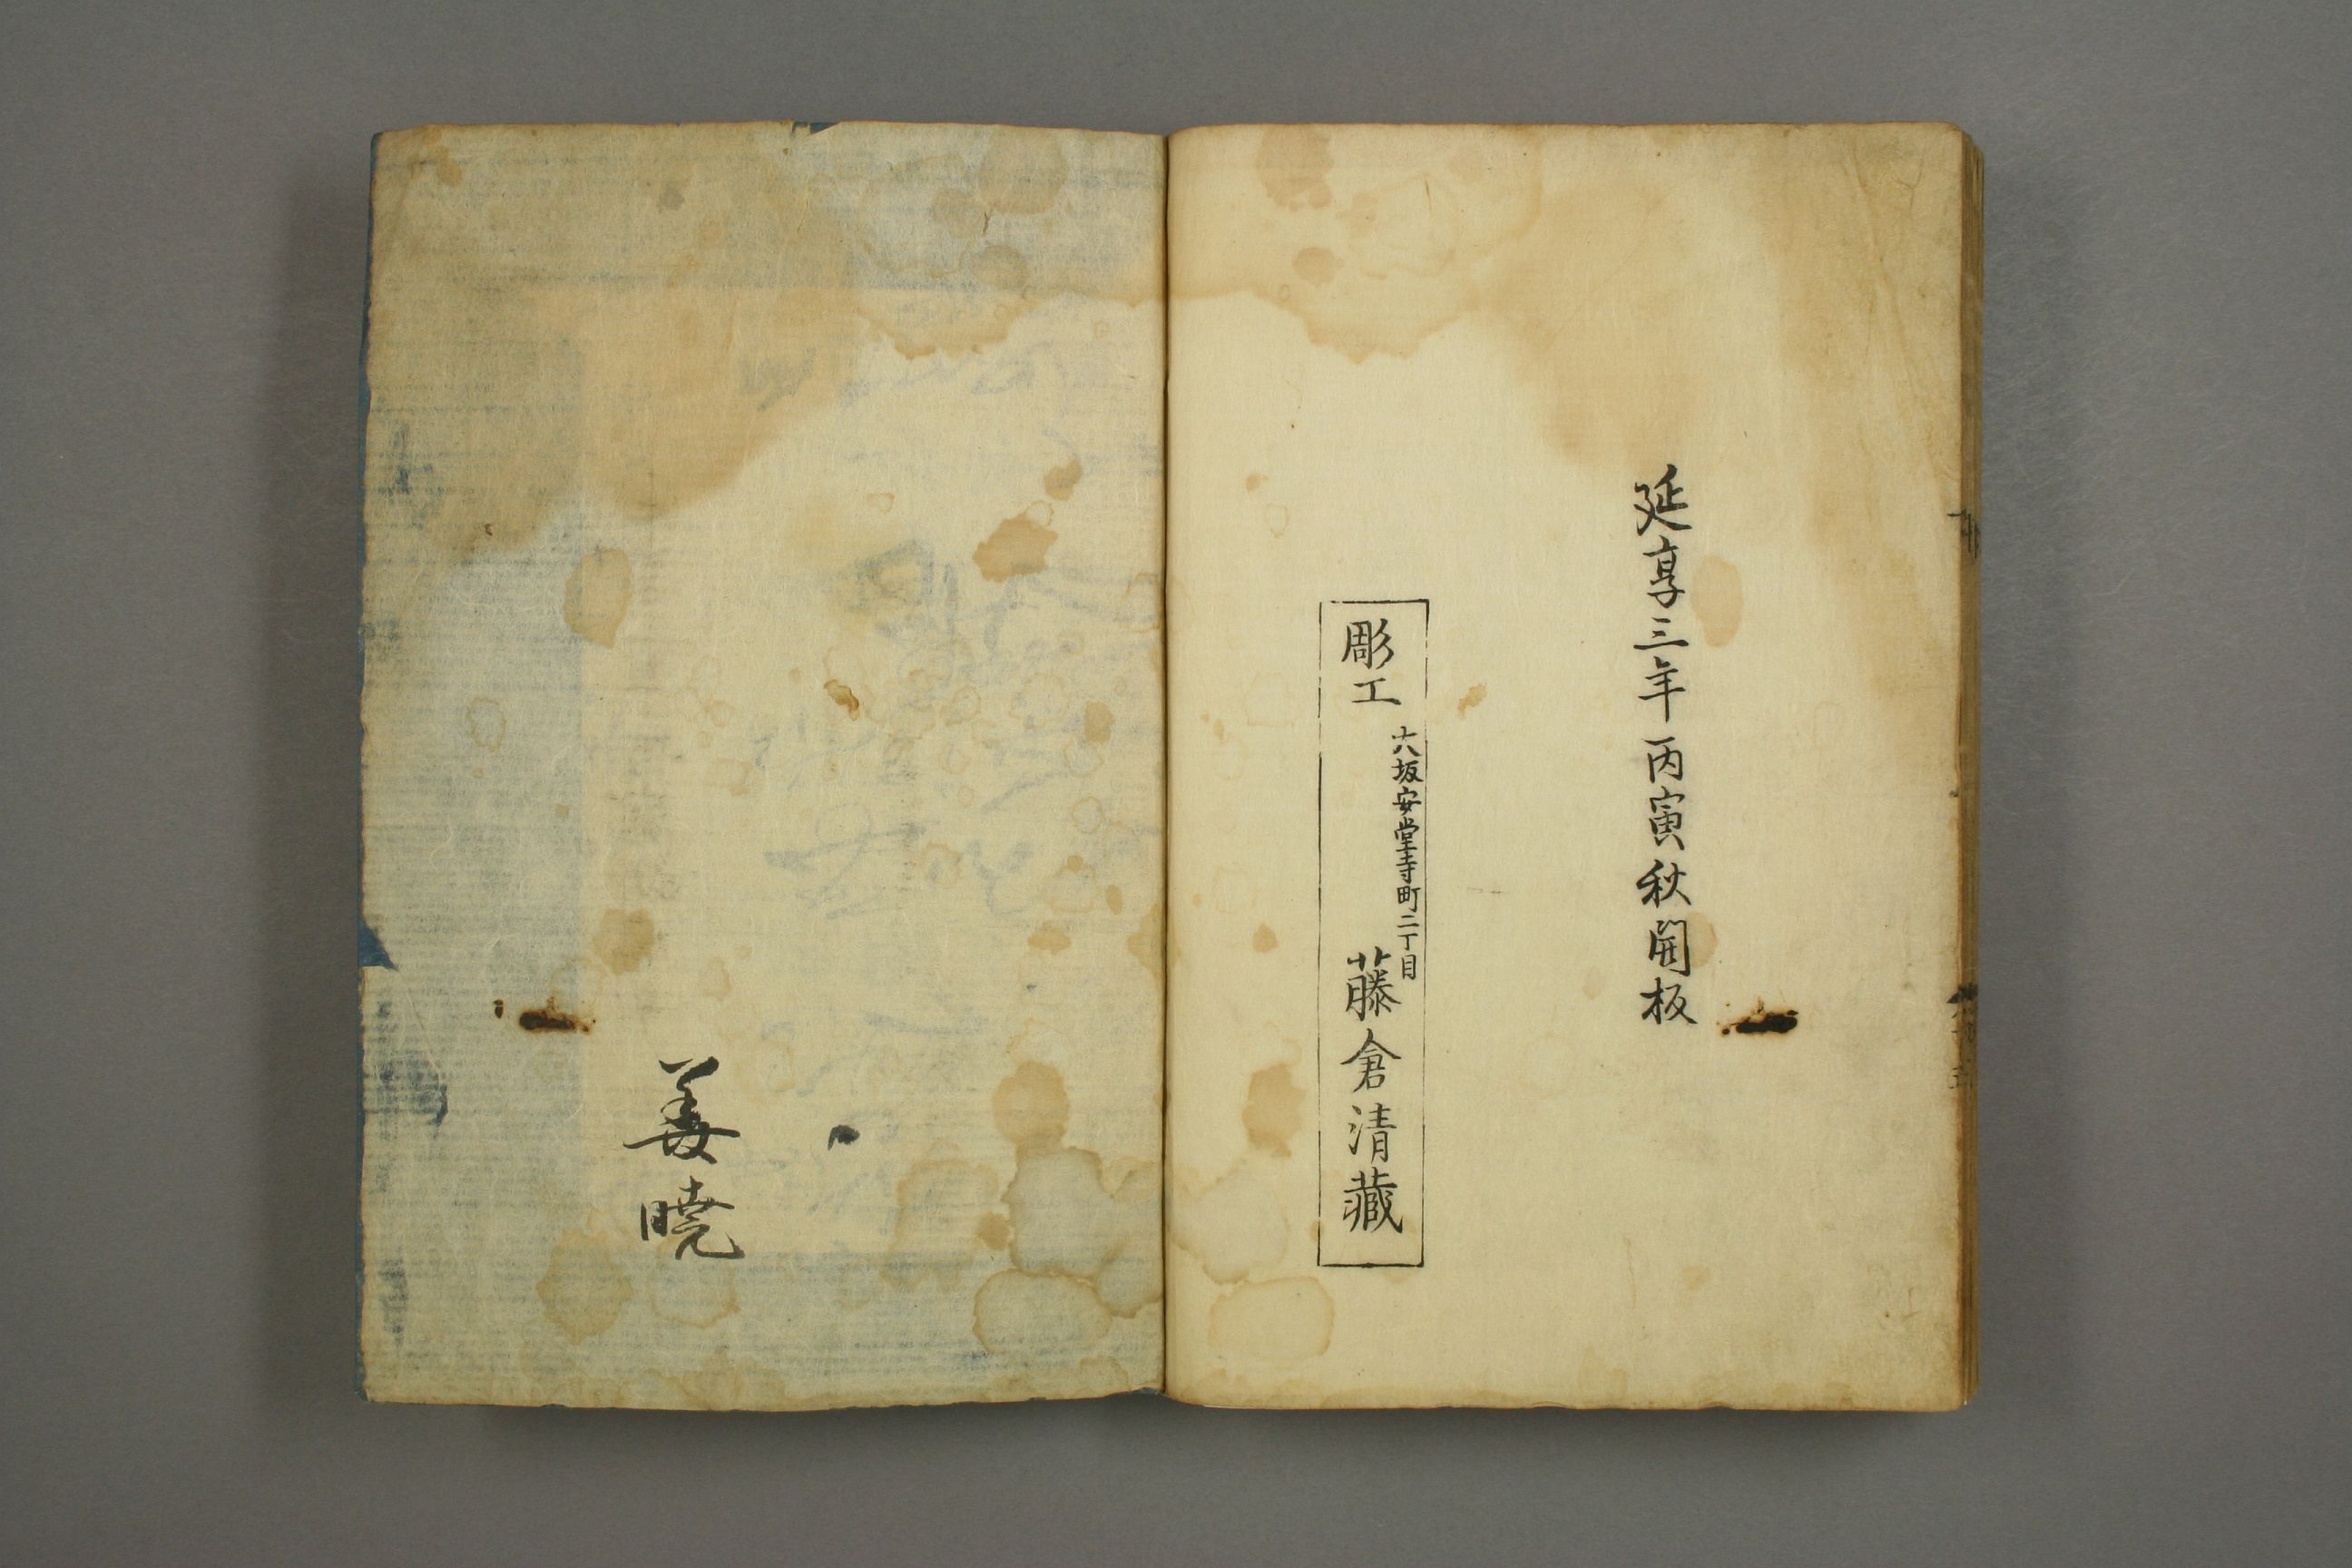 延享三年丙寅秋開板
彫工
大坂安堂寺町二丁目
藤倉清藏
義曉